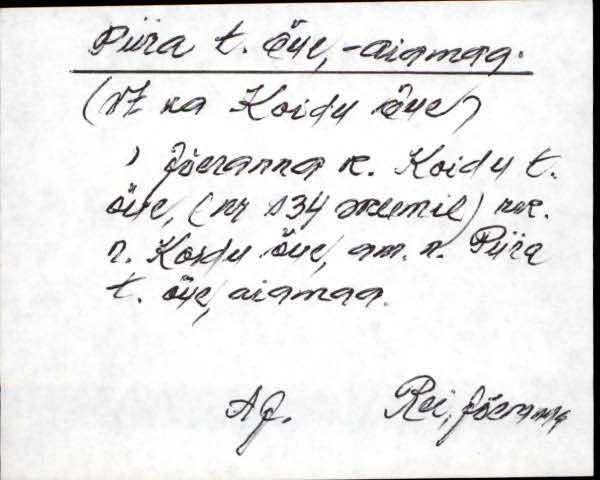 Piira t. õue, -aiamaa.
(vt ka Koidu õue)
, Jõeranna k. Koidu t.
õue, (nr 134 skeemil) rek.
n. Koidu õue, am. n. Piira
t. õue, aiamaa.
AJ. Rei, Jõeranna